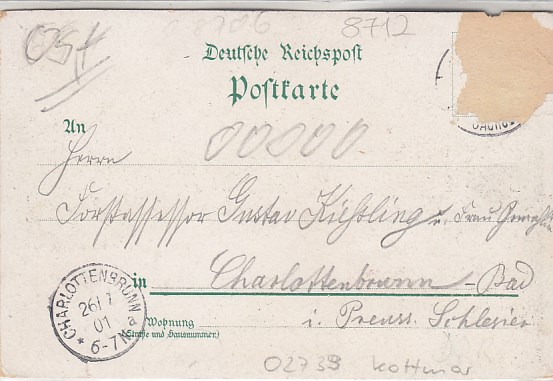 8706
8712
OSt
Deutsche Reichspost
Postkarte
An
00000
Herrn
Forstassessor Gustav Kießling u. Frau Gemahlin
in Charlottenbrunn - Bad
Wohnung i. Preuss. Schlesien
(Straße und Hausnummer.)
CHARLOTTENBRUNN
26/7
01
* 6-7N a
02739 Kottmar